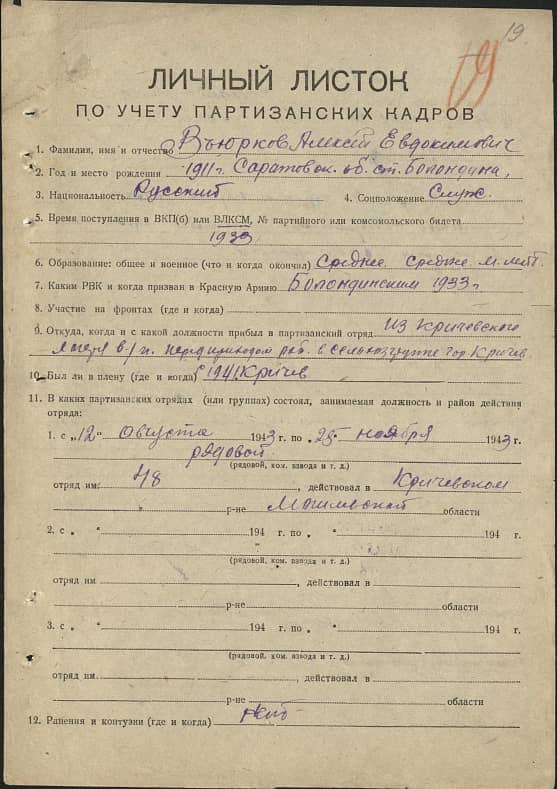 19.
19
ЛИЧНЫЙ ЛИСТОК
ПО УЧЕТУ ПАРТИЗАНСКИХ КАДРОВ
1. Фамилия, имя и отчество Вьюрков Алексей Евдокимович
2. Год и место рождения 1911 г. Саратовск. об. ст. Болондина,
3. Национальность Русский 4. Соцположение Служ.
5. Время поступления в ВКП(б) или ВЛКСМ, № партийного или комсомольского билета
1933
6. Образование: общее и военное (что и когда окончил) Средне.
7. Каким РВК и когда призван в Красную Армию Болондинским 1933 г
8. Участие на фронтах (где и когда)
9. Откуда, когда и с какой должности прибыл в партизанский отряд. Из Кричевского
лагеря в/п. перед приходом раб. в гор. Кричев.
10. Был ли в плену (где и когда) с 1941. Кричев
11. В каких партизанских отрядах (или группах) состоял, занимаемая должность и район действия
отряда:
1. с „12" августа 1943 г. по „25" ноября 1943 г.
рядовой
(рядовой, ком. взвода и т. д.)
отряд им. 48 , действовал в Кричевском
р-не Могилевской области
2. с „ " 194 г. по „ " 194 г.
(рядовой, ком. взвода и т. д.)
отряд им , действовал в
р-не области
3. с „ " 194 г. по „ " 194 г.
(рядовой, ком. взвода и т. д.)
отряд им. , действовал в
р-не области
12. Ранения и контузии (где и когда) нет